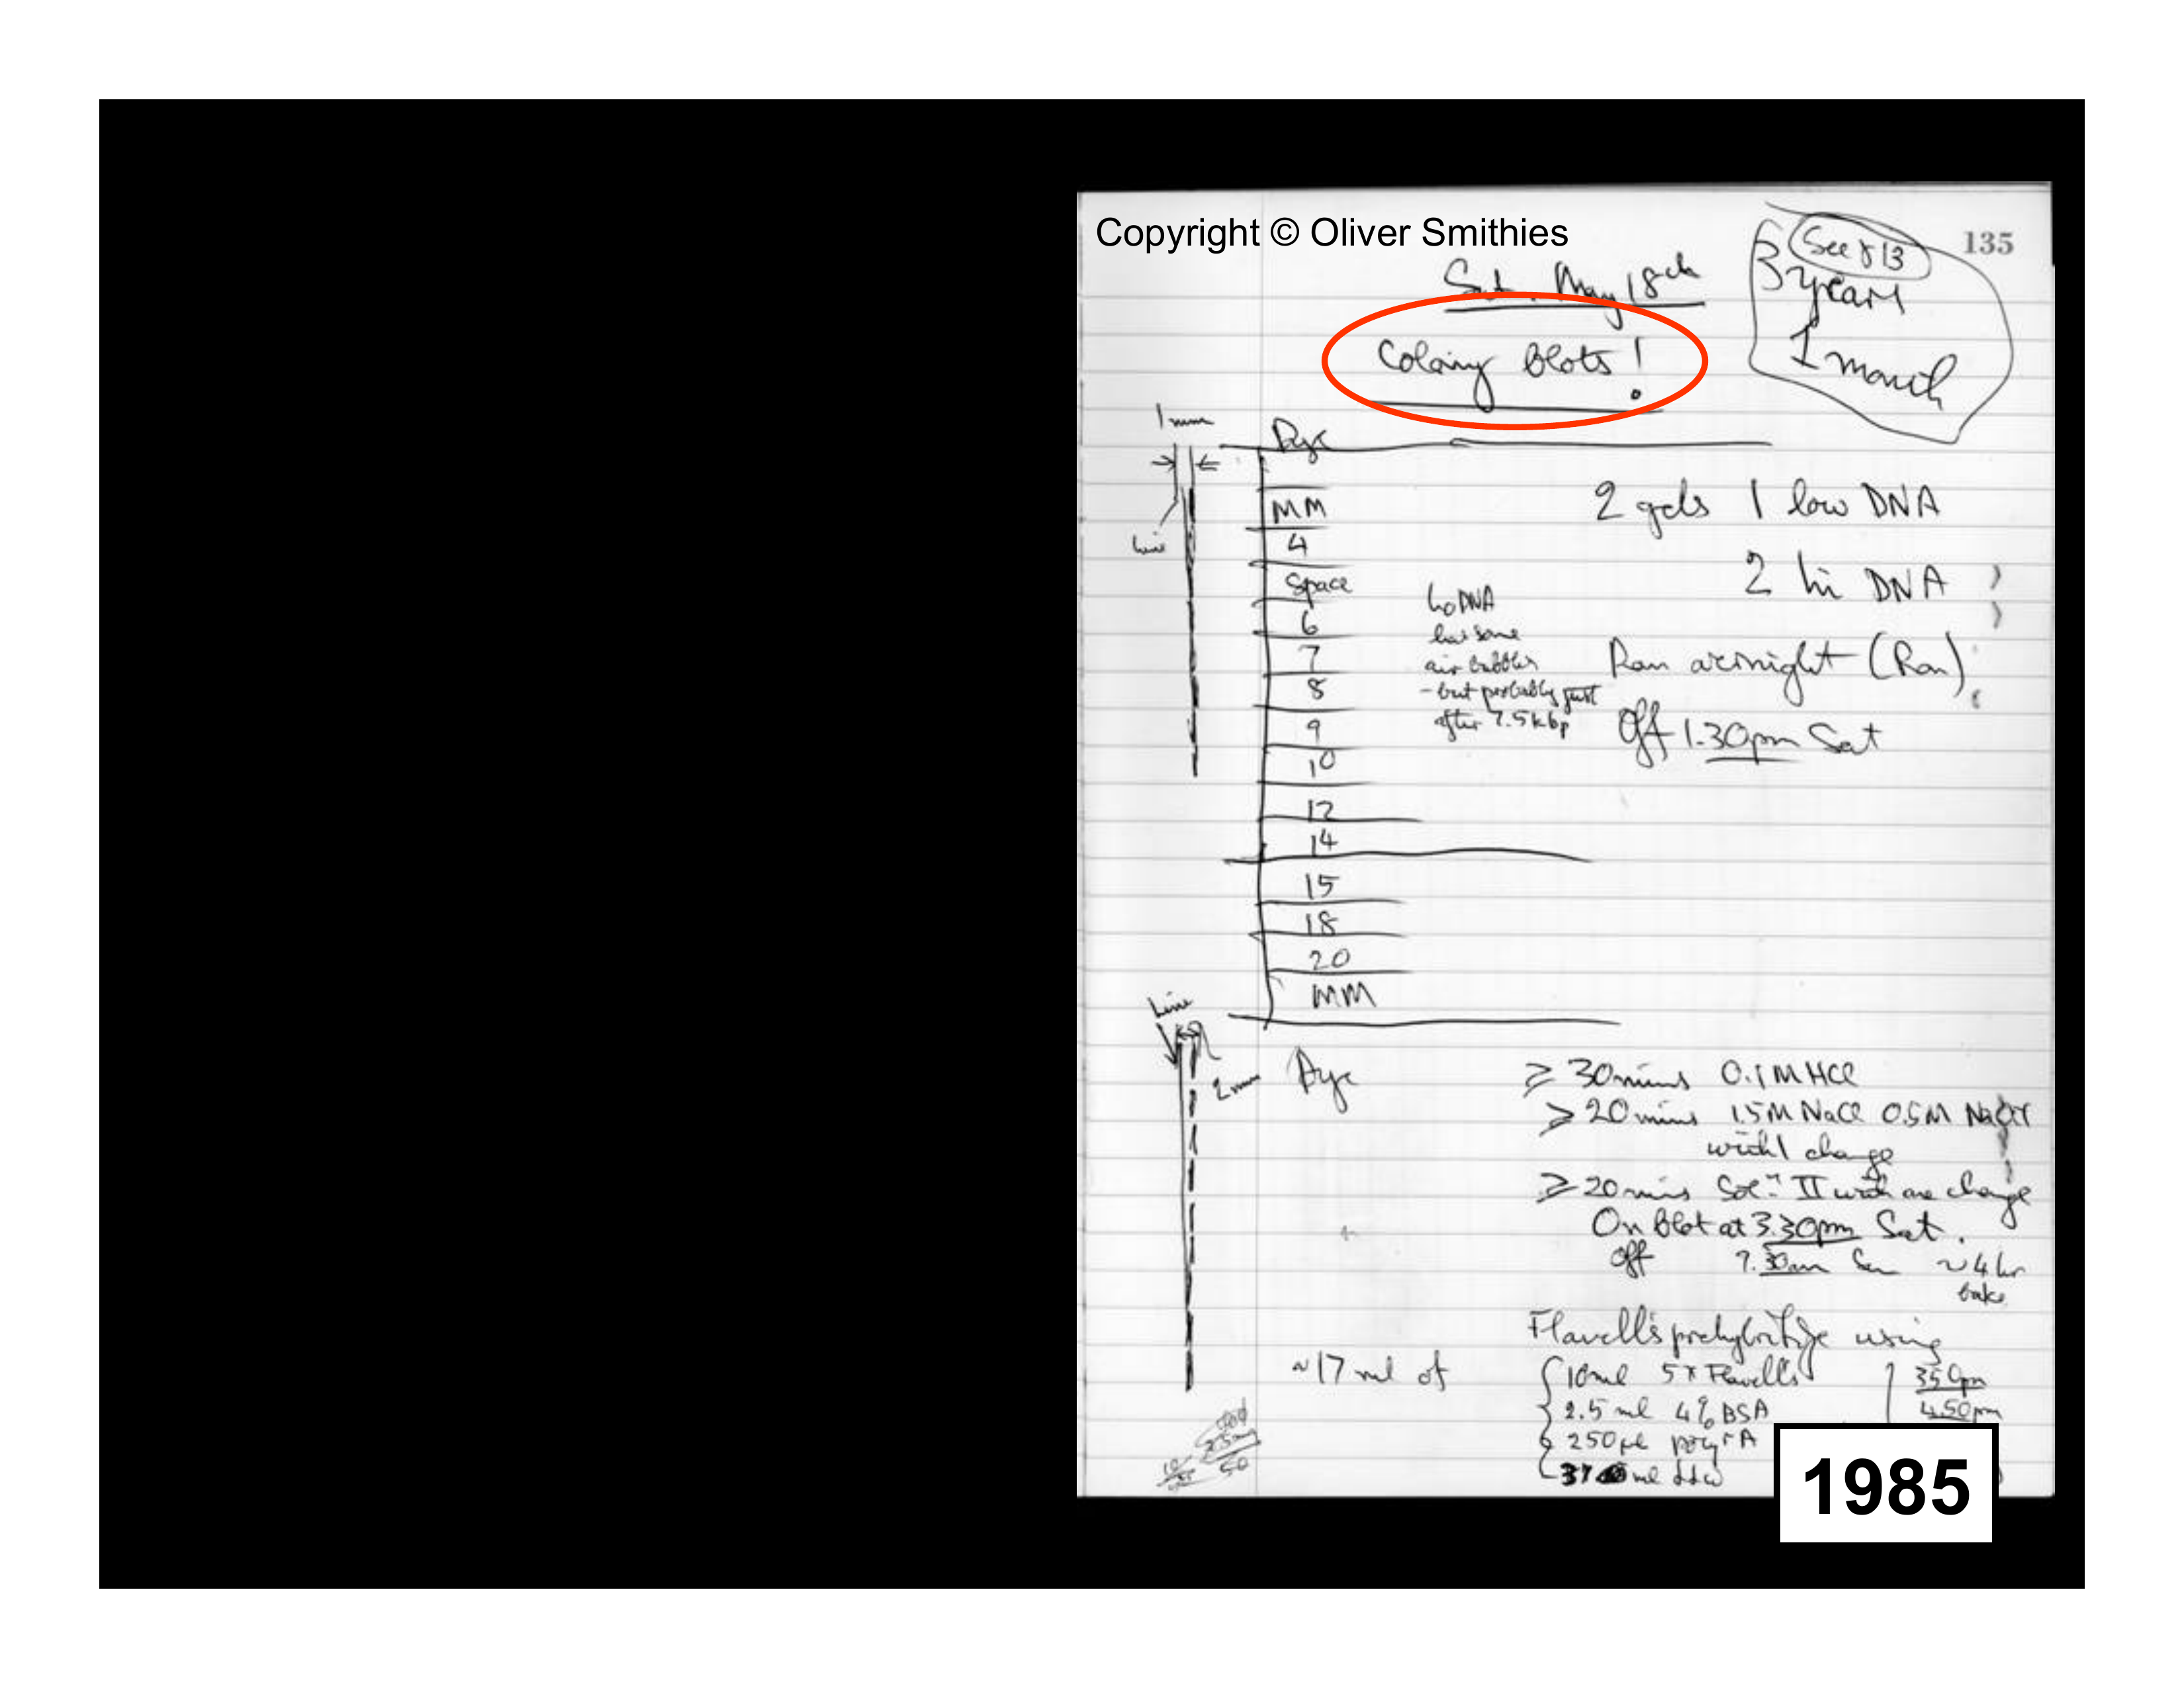 Copyright © Oliver Smithies
135
See p 13
3 years
1 month
Sat. May 18th
Colony Blots!
1 mm
Line
Dye
MM
4
Space
6
7
8
9
10
12
14
15
18
20
MM
Dye
2 gels 1 low DNA
2 hi DNA
Lo DNA
has some
air bubbles
- but probably just
after 7.5 kbp
Ran overnight (Ron)
Off 1.30pm Sat
Line
2 mm
≥ 30 mins 0.1M HCl
≥ 20 mins 1.5M NaCl 0.5M NaOH
with 1 change
≥ 20 mins Soln II with one change
On Blot at 3.30pm Sat.
off 7.30am Sun ~4 hr
bake
Flavell's prehybridize using
~17 ml of
10ml 5x Flavell's
2.5 ml 4% BSA
250 µl poly rA
ml ddw
3.50pm
4.50pm
50
1985